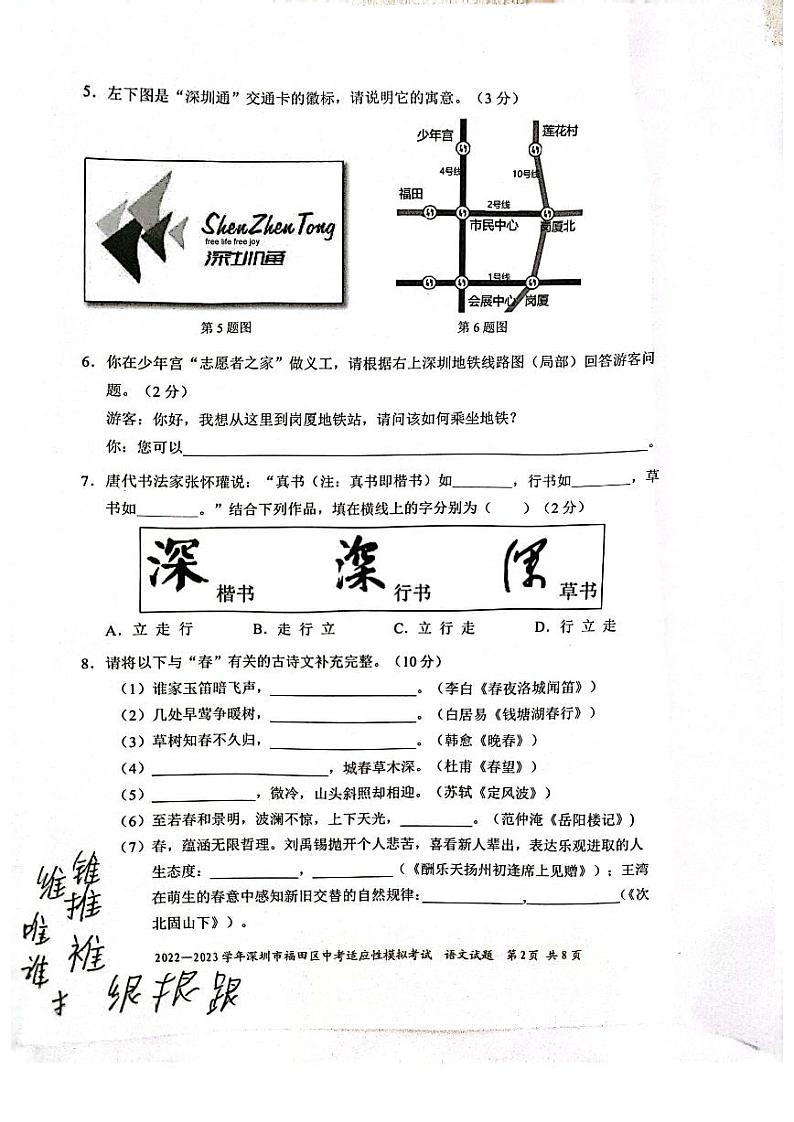 5．左下图是“深圳通”交通卡的徽标，请说明它的寓意。（3 分）
ShenZhenTong
free life free joy
深圳通
第 5 题图
少年宫
莲花村
4号线
10号线
福田
2号线
市民中心
岗厦北
1号线
会展中心
岗厦
第 6 题图
6．你在少年宫“志愿者之家”做义工，请根据右上深圳地铁线路图（局部）回答游客问
题。（2 分）
游客：你好，我想从这里到岗厦地铁站，请问该如何乘坐地铁？
你：您可以____________________。
7．唐代书法家张怀瓘说：“真书（注：真书即楷书）如________，行书如________，草
书如________。”结合下列作品，填在横线上的字分别为（　　）（2 分）
深 楷书 深 行书 深 草书
A．立 走 行　　B．走 行 立　　C．立 行 走　　D．行 立 走
8．请将以下与“春”有关的古诗文补充完整。（10 分）
（1）谁家玉笛暗飞声，____________________。（李白《春夜洛城闻笛》）
（2）几处早莺争暖树，____________________。（白居易《钱塘湖春行》）
（3）草树知春不久归，____________________。（韩愈《晚春》）
（4）____________________，城春草木深。（杜甫《春望》）
（5）____________________，微冷，山头斜照却相迎。（苏轼《定风波》）
（6）至若春和景明，波澜不惊，上下天光，__________。（范仲淹《岳阳楼记》）
（7）春，蕴涵无限哲理。刘禹锡抛开个人悲苦，喜看新人辈出，表达乐观进取的人
生态度：____________，____________（《酬乐天扬州初逢席上见赠》）；王湾
在萌生的春意中感知新旧交替的自然规律：____________，____________（《次
北固山下》）。
维 锥
推
唯
谁
扌
很 报 跟
2022—2023 学年深圳市福田区中考适应性模拟考试　语文试题　第 2 页 共 8 页